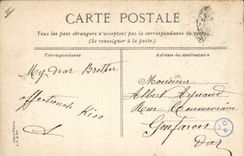 CARTE POSTALE
Tous les pays étrangers n'acceptent pas la correspondance
(Se renseigner à la poste.)
Correspondance
Adresse du destinataire
My dear Brother
affectionate Kiss
Monsieur
Albert Aynaud
Rue
Gonfaron
Var